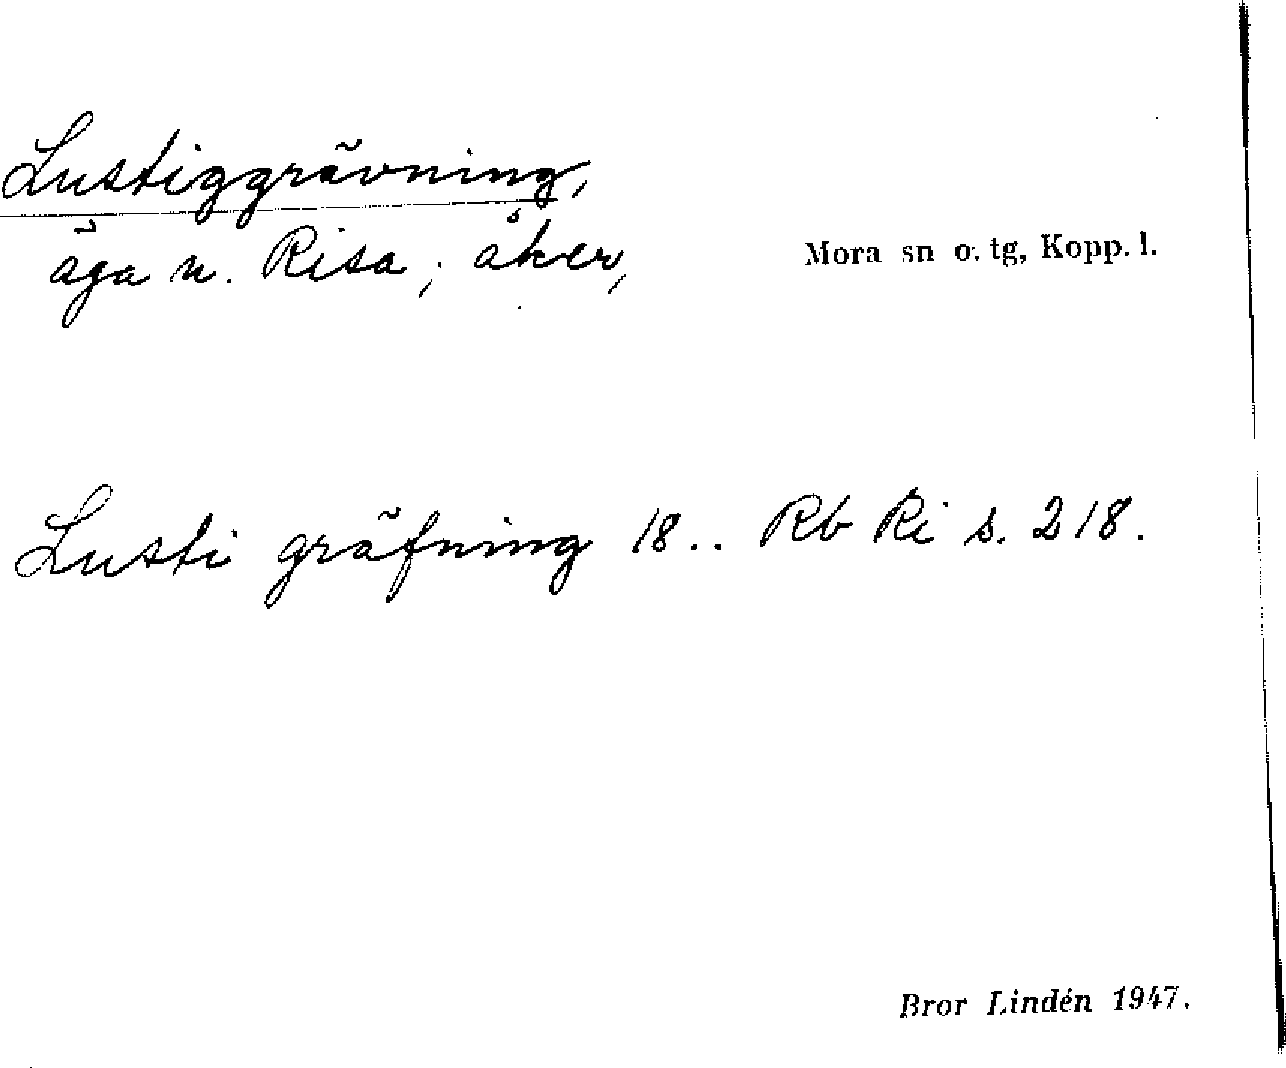 Lustiggrävning,
äga n. Risa; åker,
Mora sn o. tg, Kopp. l.
Lusti gräfning 18.. Rb Ri s. 218.
Bror Lindén 1947.